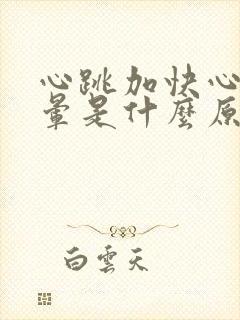 心跳加快心
暈是什麼原
白雲天